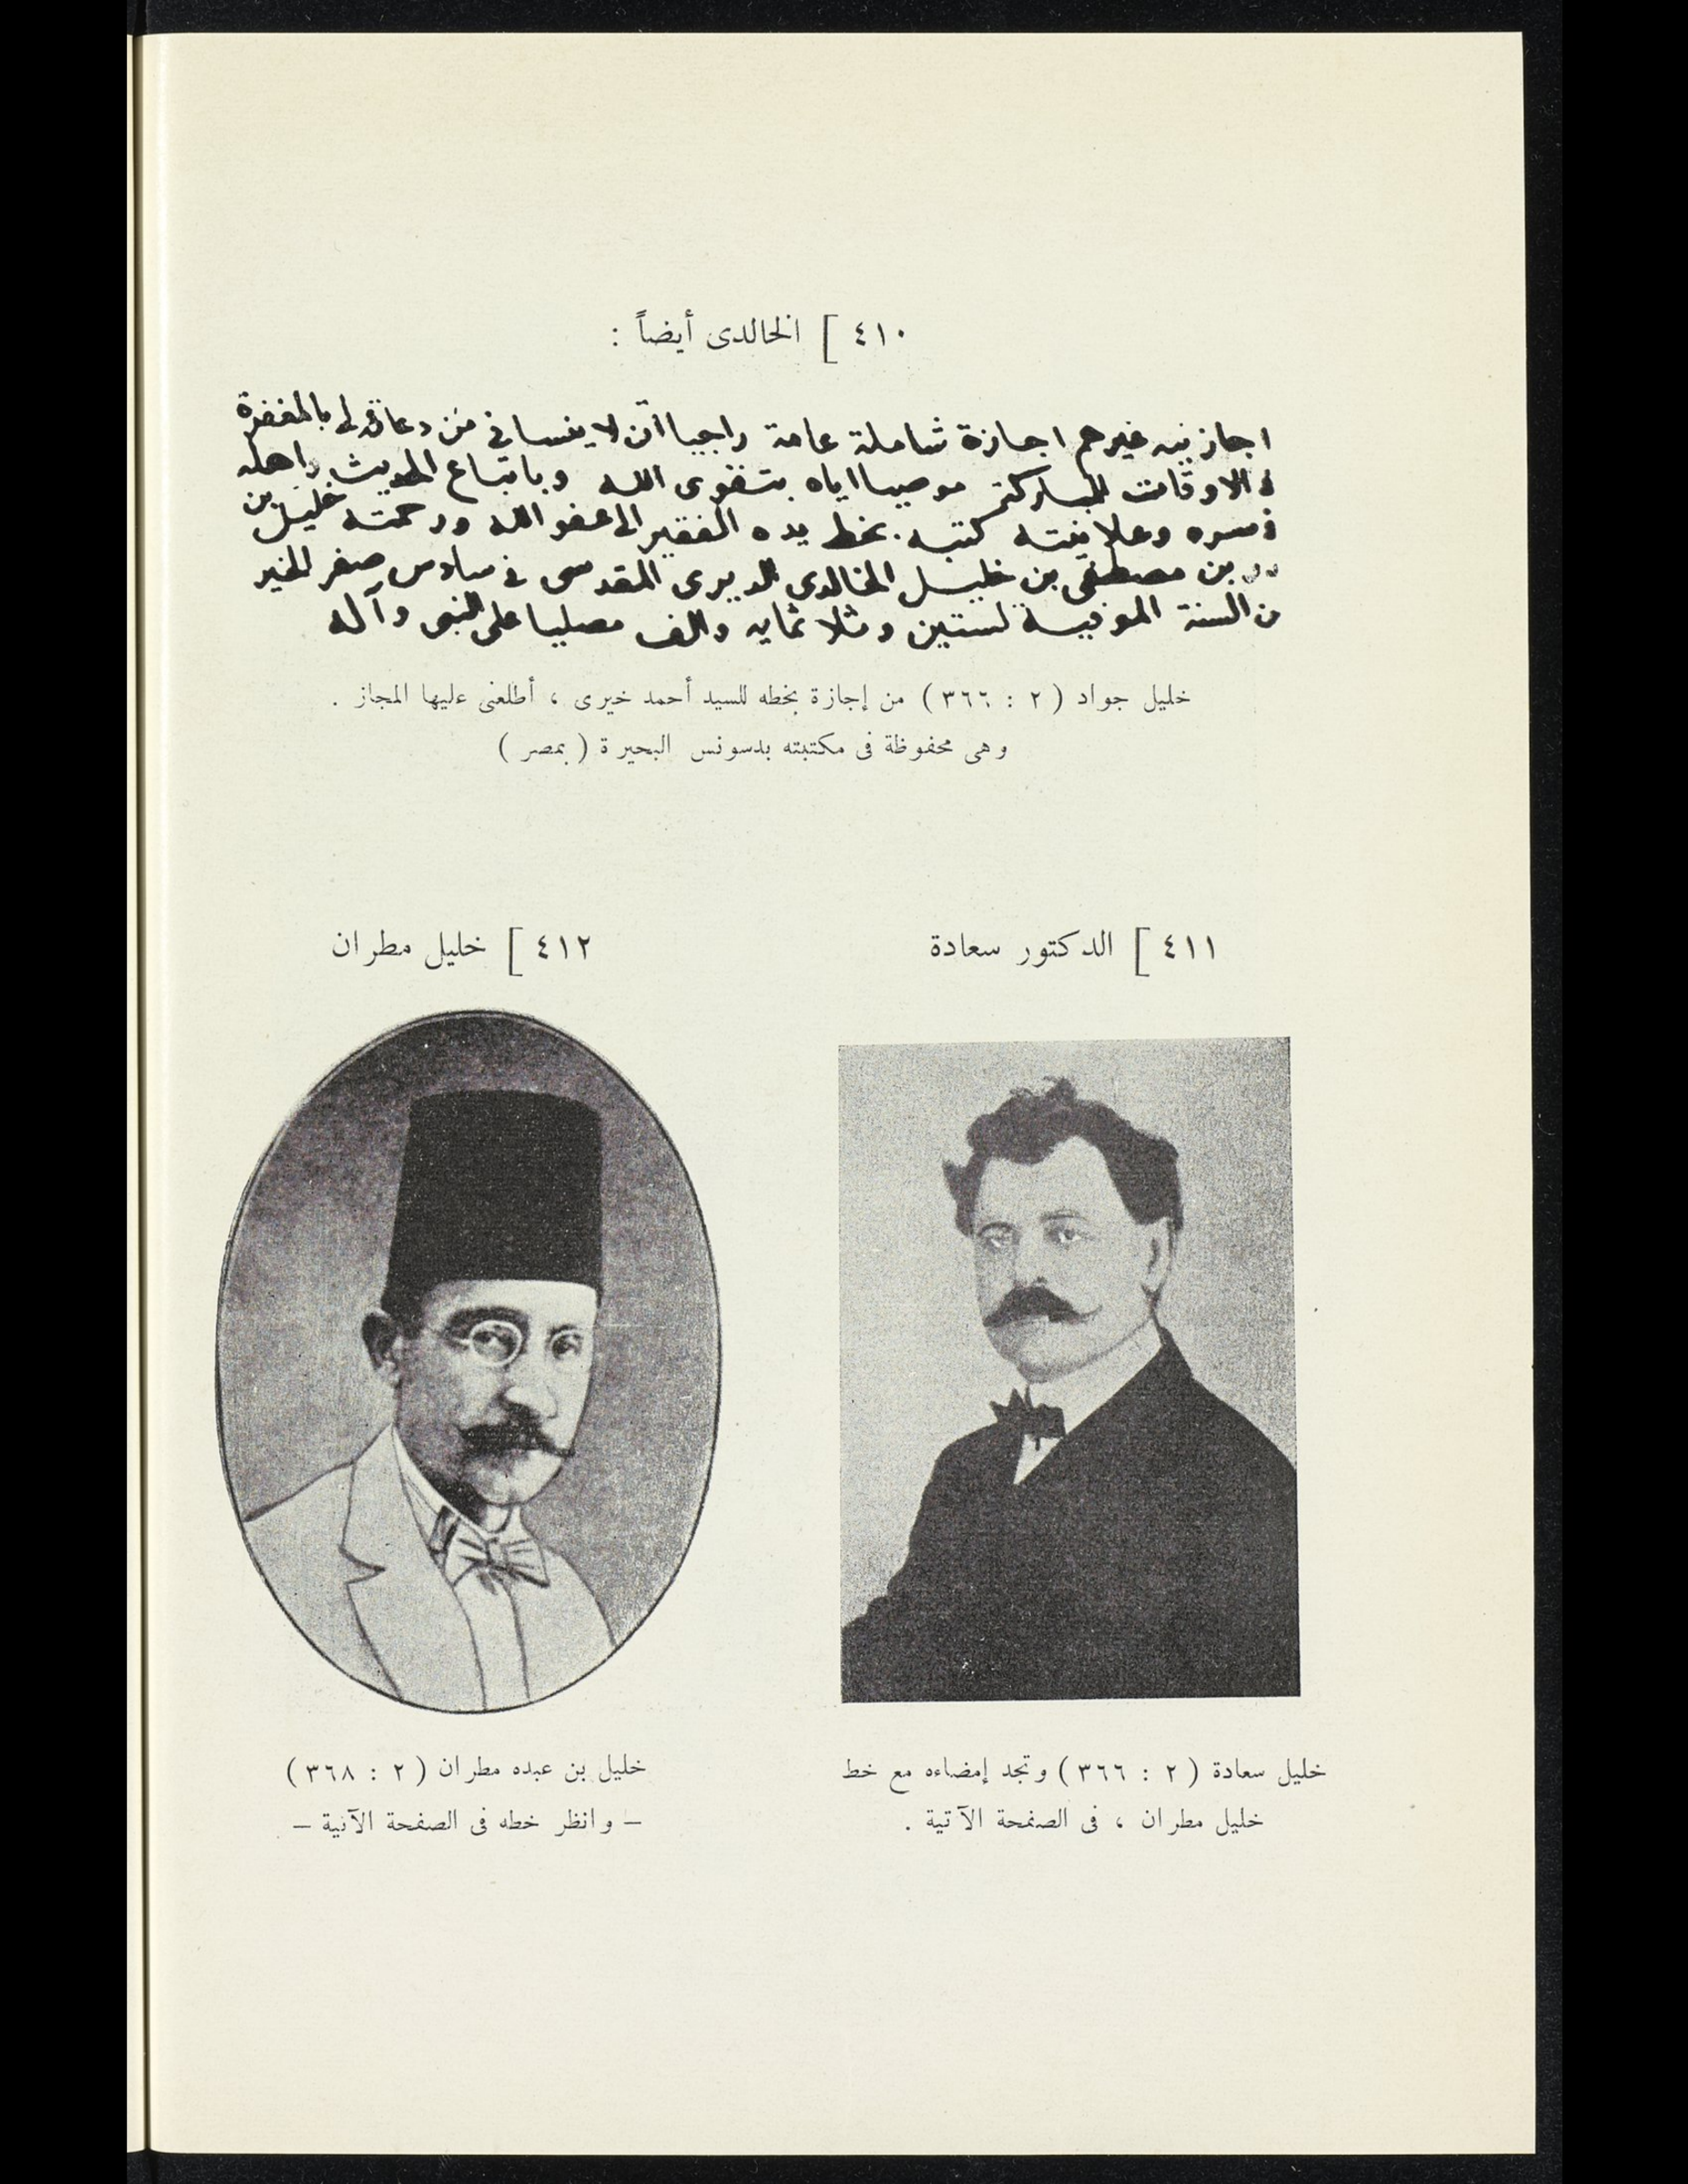 ٤١٠ ] الخالدى أيضاً :
اجاز نيه غيرهم اجازة شاملة عامة راجيا ان لا ينساني من دعائه لي بالمغفرة
في الاوقات المباركة موصيا اياه بتقوى الله وباتباع الحديث واهله
في سره وعلانيته كتبه بخط يده الفقير الى عفو الله ورحمته خليل بن
بن مصطفى بن خليل الخالدي الديري المقدسي في سادس صفر الخير
من السنة الموفية لستين وثلاثمايه والف مصليا على النبي وآله
خليل جواد ( ٢ : ٣٦٦ ) من إجازة بخطه للسيد أحمد خيرى ، أطلعنى عليها المجاز .
وهى محفوظة فى مكتبته بدسونس البحيرة ( بمصر )
٤١١ ] الدكتور سعادة
٤١٢ ] خليل مطران
خليل سعادة ( ٢ : ٣٦٦ ) وتجد إمضاءه مع خط
خليل مطران ، فى الصفحة الآتية .
خليل بن عبده مطران ( ٢ : ٣٦٨ )
– وانظر خطه فى الصفحة الآتية –